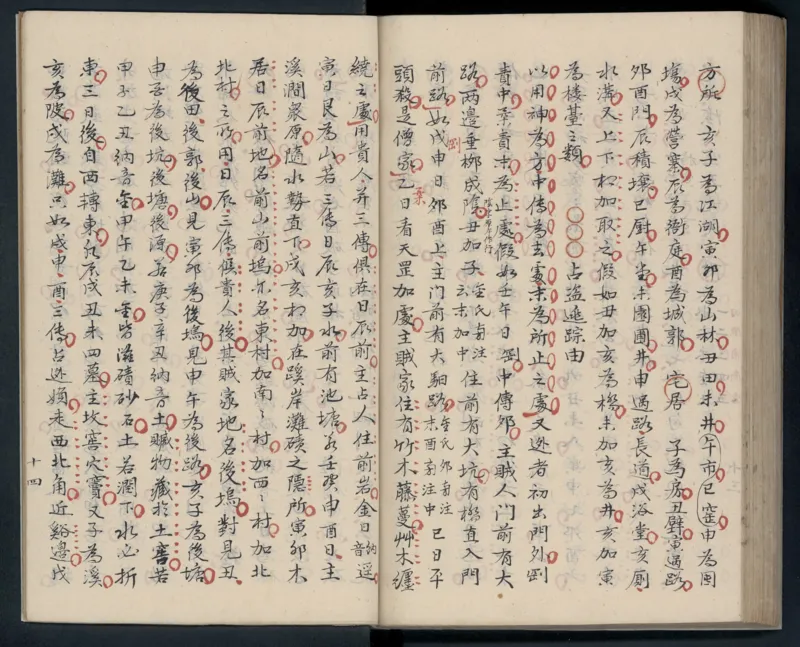 方所 亥子為江湖寅卯為山林丑田未井午市巳窑申為園
塲戌為營寨辰為衙庭酉為城郭 宅居 子為房丑壁寅過路
卯酉門辰積壤巳厨午堂未園圃井申過路長酒戌浴堂亥廁
水溝又上下相加取之假如丑加亥為橋未加亥為井亥加寅
為楼䑓之類
〇〇〇占盗追踪由
以用神為方中傳為去處末為所止之處又逃者初出門外
貴中奉貴末為止處假如壬午日 中傳卯主賊人門前有大
路两邊垂栁成隂丑加子 住前有大坑有橋直入門
前路如戌申日卯酉上主門前有大 路 巳日平
頭殺是僧家乙日看天罡加處主賊家住有竹木藤蔓艸木纏
繞之處用貴人并三傳俱在日辰前主占人住前岩金日 逕
寅日艮為山若三傳日辰亥子水前有池塘 壬癸申酉日主
溪澗衆原隨水勢直下戌亥相加在蹊岸灘磧之隱所寅卯木
居日辰前地名前山前塢 名東村加南〻村加西〻村加北
北村之 用日辰三傳俱貴人後其賊家地名後塢對見丑
為後田後郭後山見寅卯為後塢見申午為後路亥子為後塘
申酉為後坑後塘後潭若庚子辛丑納音土贓物藏於土窖若
甲子乙丑納音金甲午乙未金皆落磧砂石土若澗下水必折
東三日後自西轉東 辰戌丑未四墓主坎窖穴竇又子為溪
亥為陂戌為灘只如戌申酉三傳占逃須走西北角近谿邊戌
十四